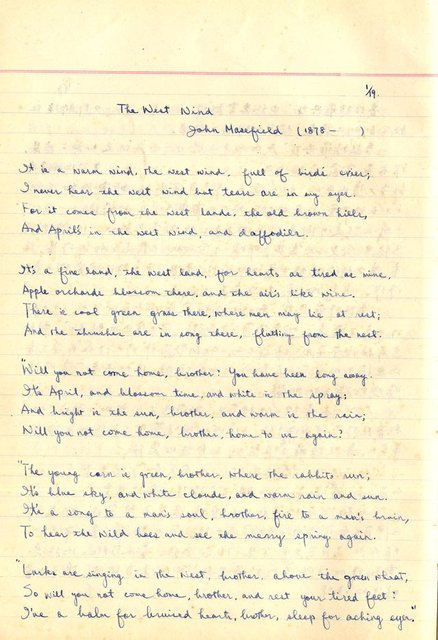 1/19.
The West Wind
John Masefield (1878 – )
It is a warm wind, the west wind, full of birds' cries;
I never hear the west wind but tears are in my eyes.
For it comes from the west lands, the old brown hills,
And April's in the west wind, and daffodils.
It's a fine land, the west land, for hearts as tired as mine,
Apple orchards blossom there, and the air's like wine.
There is cool green grass there, where men may lie at rest;
And the thrushes are in song there, fluting from the nest.
"Will you not come home, brother? You have been long away.
It's April, and blossom time, and white is the spray;
And bright is the sun, brother, and warm is the rain;
Will you not come home, brother, home to us again?
"The young corn is green, brother, where the rabbits run;
It's blue sky, and white clouds, and warm rain and sun.
It's a song to a man's soul, brother, fire to a man's brain,
To hear the wild bees and see the merry spring again.
"Larks are singing in the west, brother, above the green wheat,
So will you not come home, brother, and rest your tired feet?
I've a balm for bruised hearts, brother, sleep for aching eyes,"